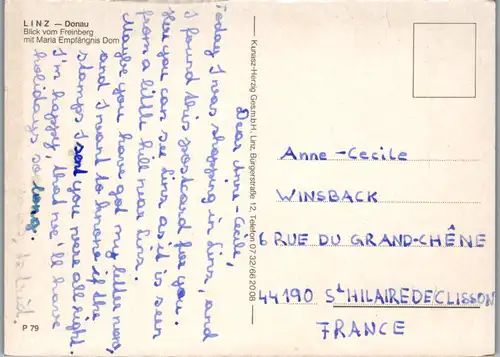 LINZ – Donau
Blick vom Freinberg
mit Maria Empfängnis Dom
Dear Anne-Cécile,
Today I was shopping in Linz, and
I found this postcard for you.
Here you can see Linz as it is seen
from a little hill near Linz.
Maybe you have got my letter now,
and I want to know if the
stamps I sent you were all right.
I'm happy, that we'll have
holidays so long.
P 79
Kunasz-Herzog Ges.m.b.H. Linz, Bürgerstraße 12, Telefon 07 32/66 20 08
Anne-Cecile
WINSBACK
6 RUE DU GRAND-CHÊNE
44190 St HILAIRE DE CLISSON
FRANCE